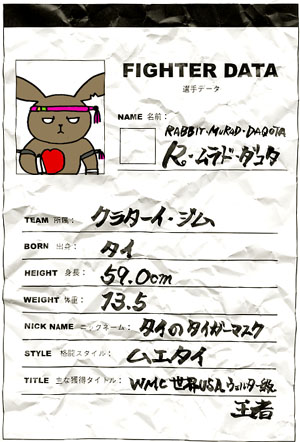 FIGHTER DATA
選手データ
NAME 名前:
RABBIT・MURAD・DAQOTA
R・ムラド・ダコタ
TEAM 所属: クラターイ・ジム
BORN 出身: タイ
HEIGHT 身長: 59.0cm
WEIGHT 体重: 73.5
NICK NAME ニックネーム: タイのタイガーマスク
STYLE 格闘スタイル: ムエタイ
TITLE 主な獲得タイトル: WMC世界USAウェルター級
王者